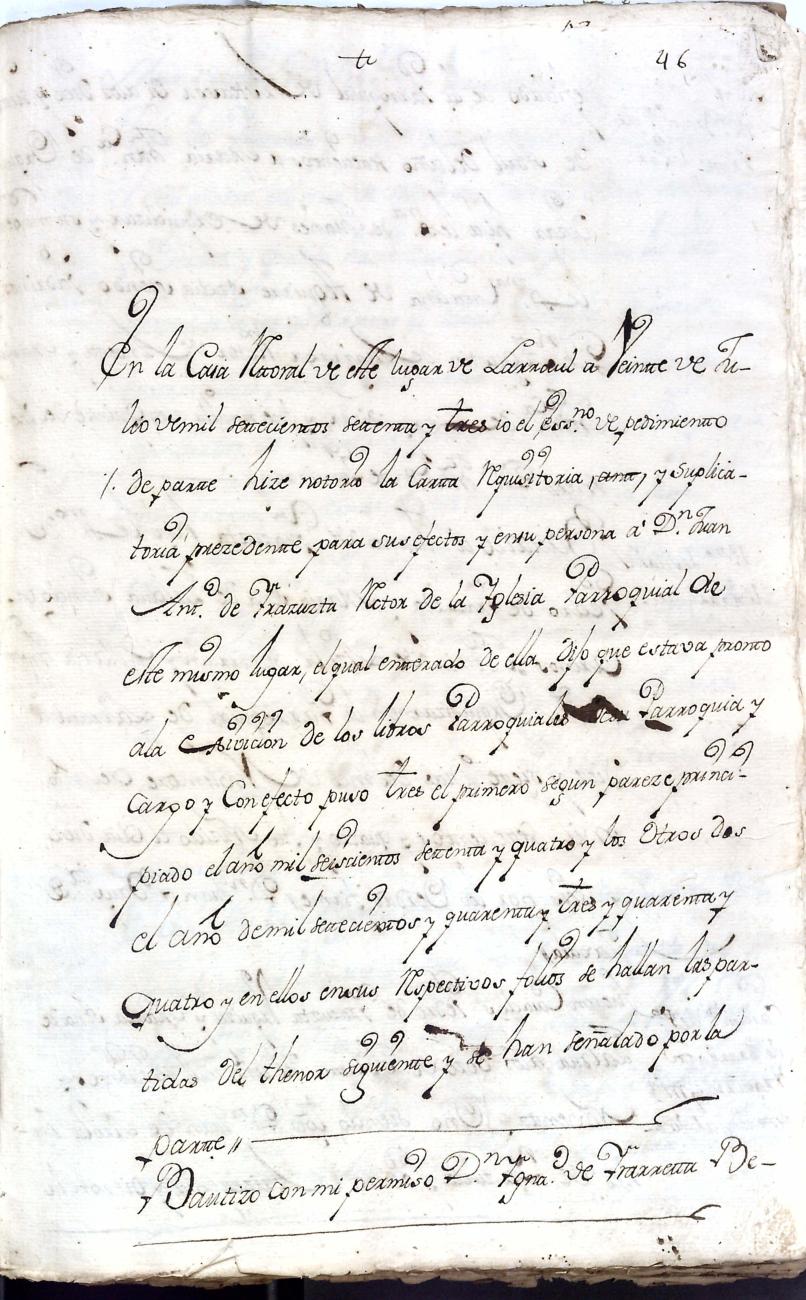 46
En la Casa Rectoral de este lugar de Larraul a Veinte de Ju-
lio de mil settecientos settenta y tres io el ess.no de pedimiento
de parte hize notorio la Carta Requisitoria, y Suplica-
toria prezedente para sus efectos y en su persona a D.n Juan
Ant.o de Yrazuzta Rector de la Yglesia Parroquial de
este mismo lugar, el qual enterado de ella, dijo que estava pronto
ala exsivicion de los libros Parroquiales de su Parroquia y
cargo y Con efecto puso tres el primero segun pareze princi-
piado el año mil seiscientos settenta y quatro y los otros dos
el año de mil settecientos y quarenta y tres y quarenta y
quatro y en ellos en sus Respectivos folios se hallan las par-
tidas del thenor siguiente y se han señalado por la
parte
Bautizo con mi permiso D.n Ygna.o de Yrarreta Be-